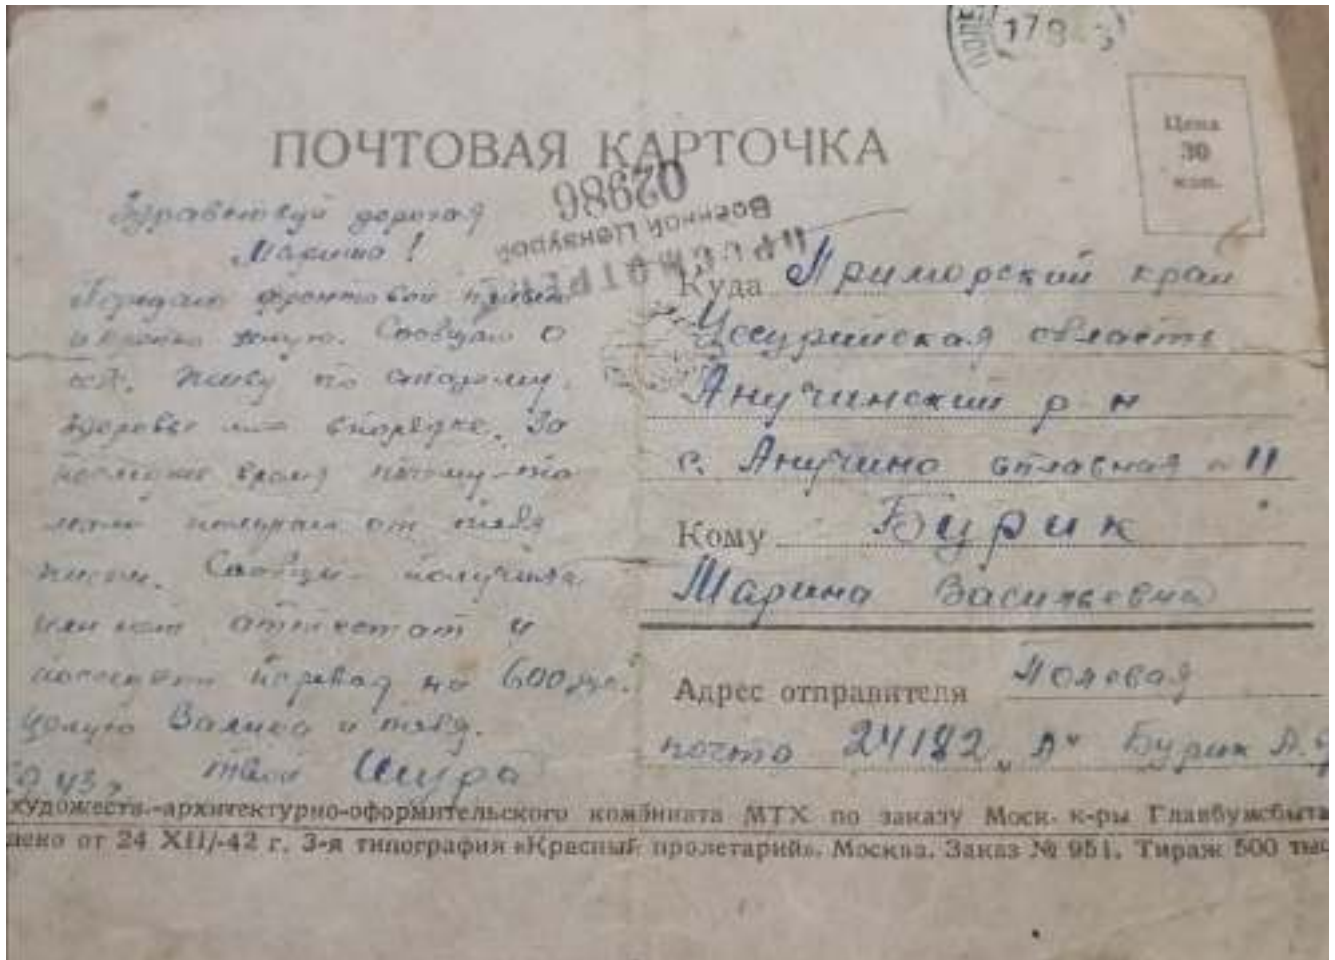 17 8 43
Цена
30
коп.
ПОЧТОВАЯ КАРТОЧКА
02986
Военной Цензурой
ПРОСМОТРЕНО
Здравствуй дорогая
Марина!
Передаю фронтовой привет
и крепко жму. Сообщаю о
себе. Живу по старому,
здоровье в порядке. За
последнее время почему-то
мало получаю от тебя
писем. Сообщи получила
или нет аттестат и
перевод на 600 руб.
Целую Валика и тебя.
43 г. твой Шура
Куда Приморский край
Уссурийская область
Анучинский р н
с. Анучино главная 11
Кому Бурик
Марина Васильевна
Адрес отправителя Полевая
почта 24182 "А" Бурик А.
художеств.-архитектурно-оформительского комбината МТХ по заказу Моск. к-ры Главбумсбыта
от 24 XII/-42 г. 3-я типография «Красный пролетарий». Москва. Заказ № 951. Тираж 500 тыс